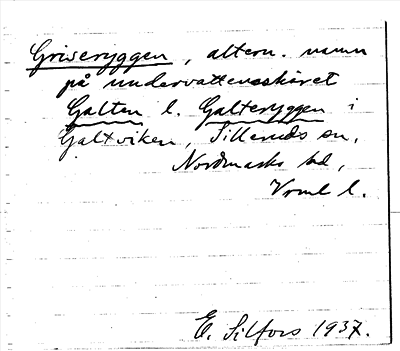 Griseryggen, altern. namn
på undervattensskäret
Galten l. Galteryggen i
Galtviken, Silleruds sn,
Nordmarks hd,
Vrml l.
E. Silfors 1937.